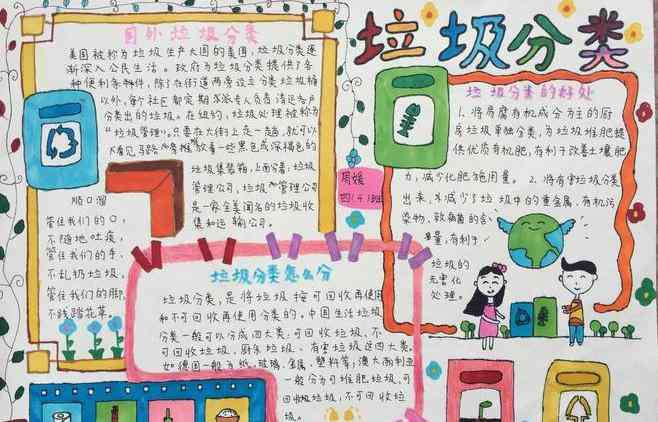 垃圾分类
国外垃圾分类
美国被称为垃圾生产大国的美国,垃圾分类逐
渐深入公民生活。政府为垃圾分类提供了各
种便利条件,除了在街道两旁设立分类垃圾桶
以外,每个社区都定期派专人负责清运各户
分类出的垃圾。在纽约,垃圾处理被称为
“垃圾管理”。只要在大街上走一走,就可以
看见马路旁放着一些黑色或深褐色的
垃圾集装箱,上面分着:垃圾
管理公司,垃圾管理公司
是一家全美闻名的垃圾收
集和运输公司。
顺口溜
管住我们的口,
不随地吐痰,
管住我们的手,
不乱扔垃圾,
管住我们的脚,
不践踏花草。
周媛
四(4)班
垃圾分类的好处
1、将易腐有机成分为主的厨
房垃圾单独分类,为垃圾堆肥提
供优质有机肥,有利于改善土壤肥
力,减少化肥施用量。2、将有害垃圾分类
出来,减少了垃圾中的重金属,有机污
染物、致病菌的含
量,有利于
垃圾的
无害化
处理。
垃圾分类怎么分
垃圾分类,是将垃圾按可回收再使用
和不可回收再使用分类的。中国生活垃圾
分类一般可以分成四大类:可回收垃圾、不
可回收垃圾、厨余垃圾、有害垃圾这四大类。
如德国一般为纸、玻璃、金属、塑料等;澳大利亚
一般分为可堆肥垃圾,可
回收垃圾,不可回收垃
圾。